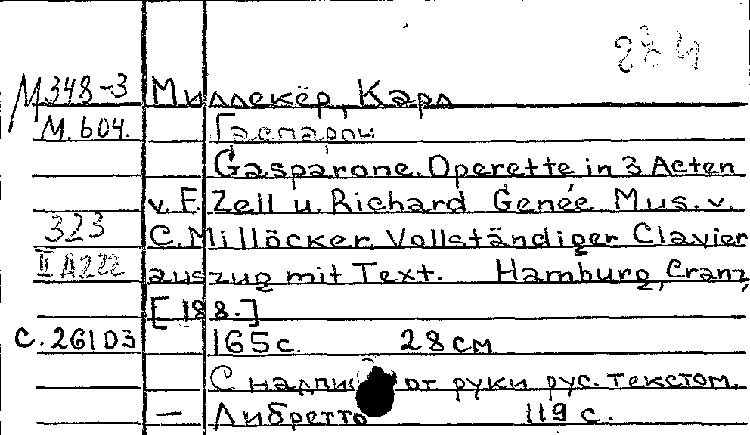 284
М348-3 Миллекёр, Карл
М.604. Гаспарон
Gasparone. Operette in 3 Acten
v. F. Zell u. Richard Genée Mus. v.
323 C. Millöcker. Vollständiger Clavier
II A222 auszug mit Text. Hamburg, Cranz,
[188.]
с. 26103 165 с. 28 см
С надпис от руки рус. текстом.
— Либретто 119 с.